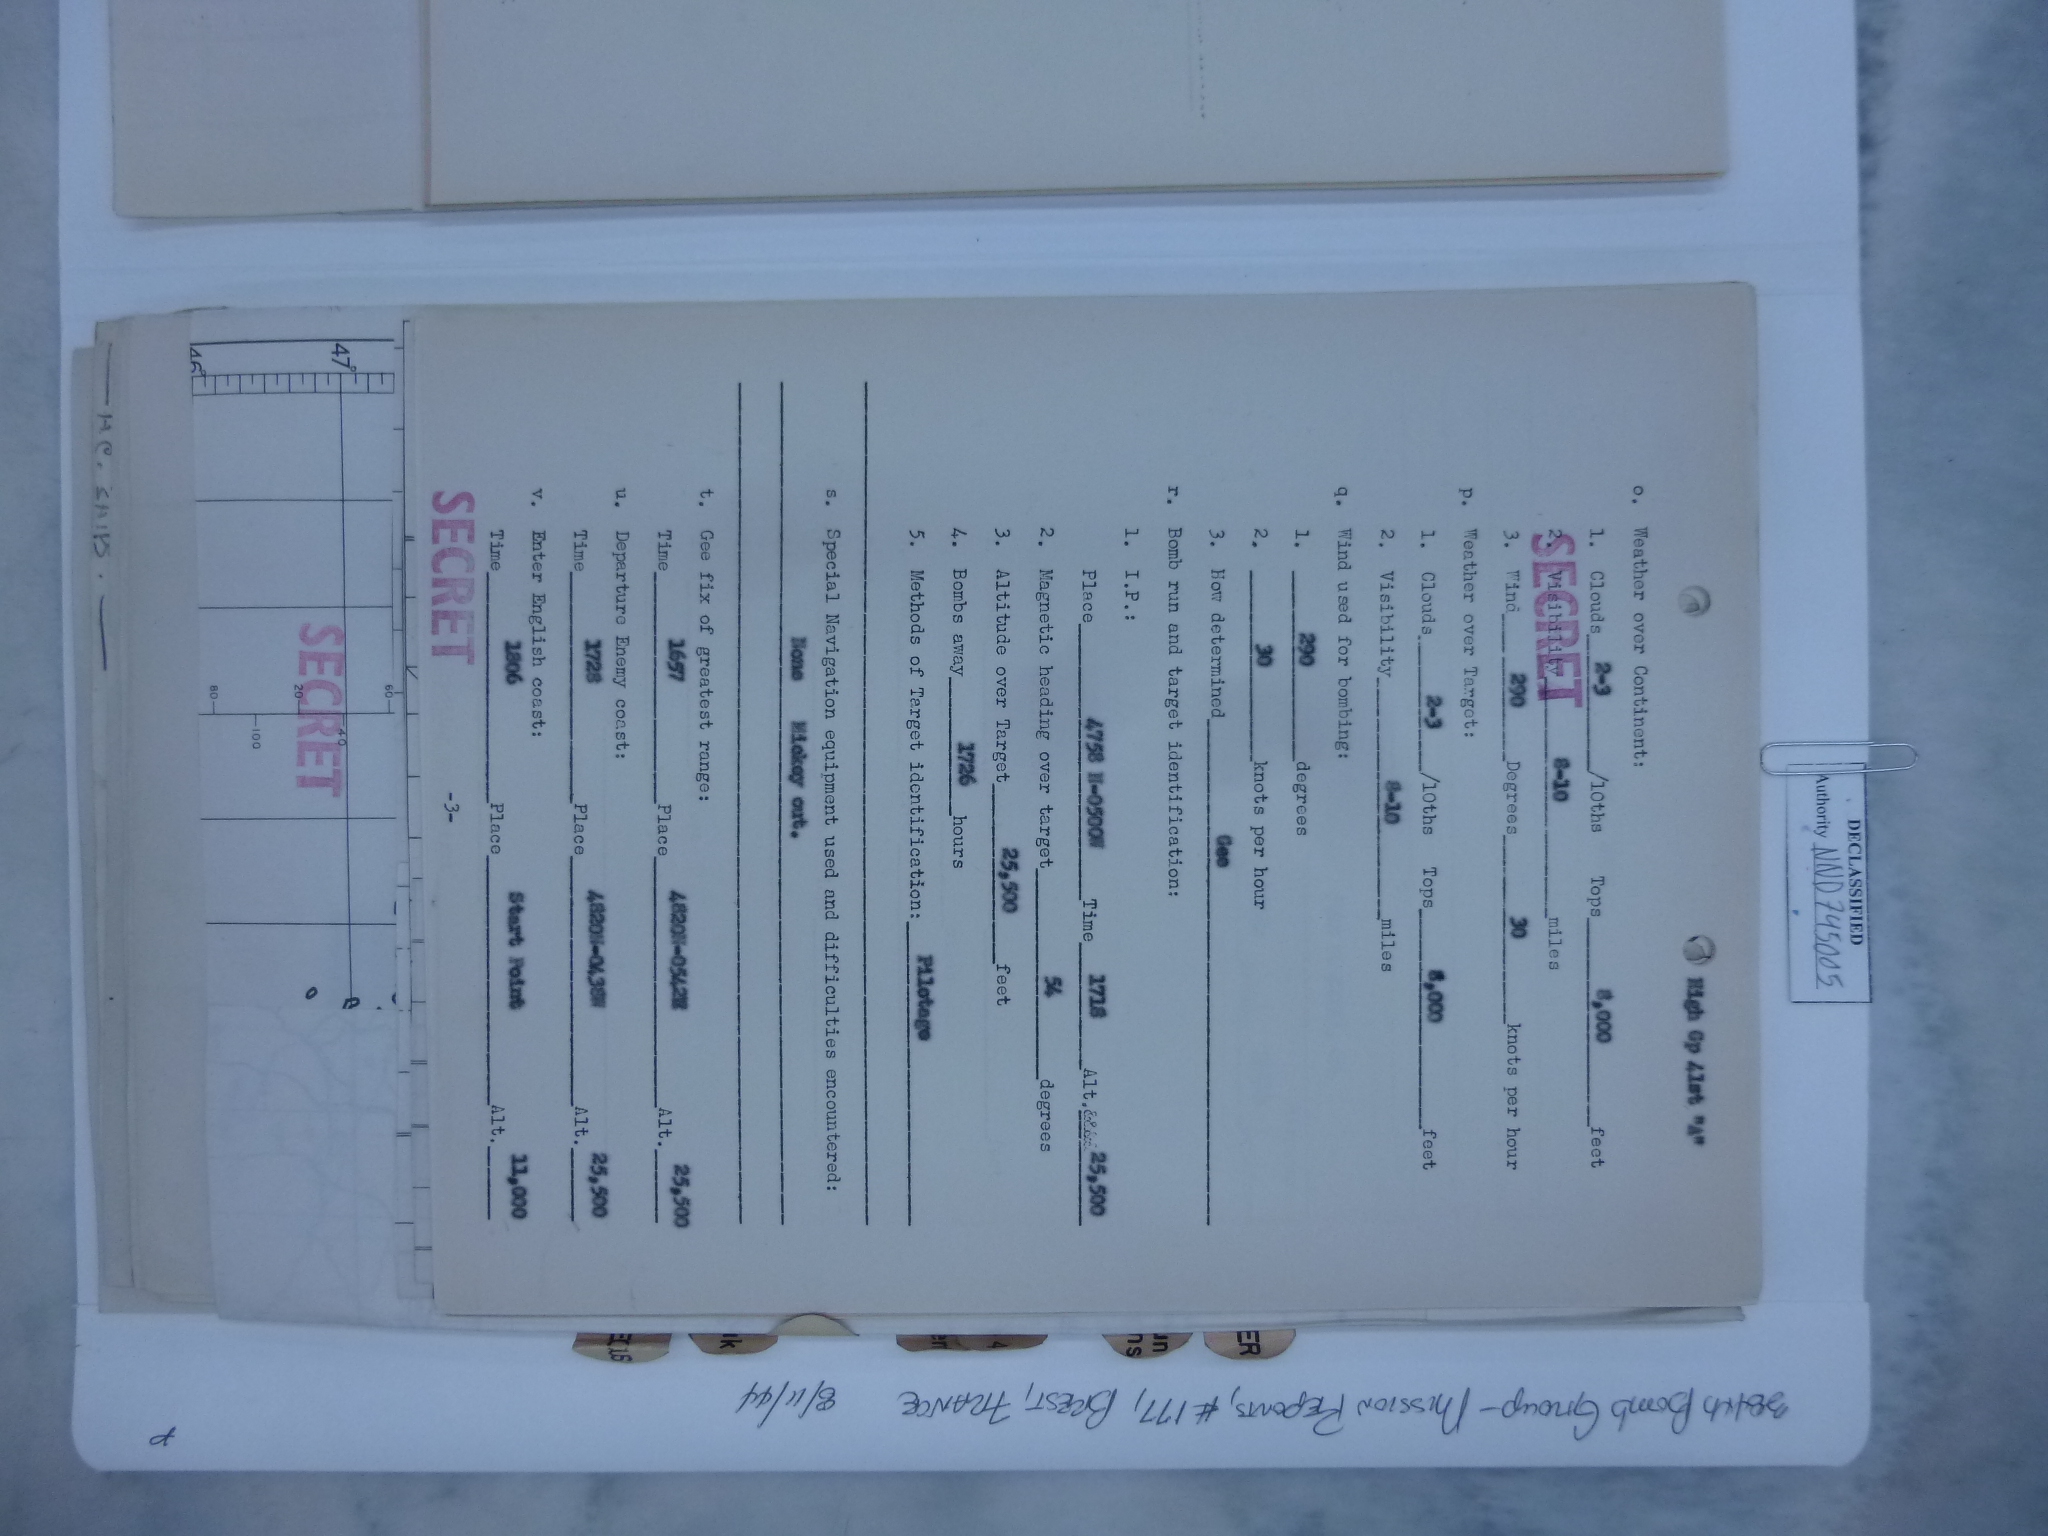 DECLASSIFIED
Authority NND 745005
High Gp 41st "A"
o. Weather over Continent:
1. Clouds 2-3 /10ths Tops 8,000 feet
2. Visibility 8-10 miles
SECRET
3. Wind 290 Degrees 30 knots per hour
p. Weather over Target:
1. Clouds 2-3 /10ths Tops 8,000 feet
2. Visibility 8-10 miles
q. Wind used for bombing:
1. 290 degrees
2. 30 knots per hour
3. How determined Gee
r. Bomb run and target identification:
1. I.P.:
Place 4758 N-0500W Time 1718 Alt. 25,500
2. Magnetic heading over target 54 degrees
3. Altitude over Target 25,500 feet
4. Bombs away 1726 hours
5. Methods of Target identification: Pilotage
s. Special Navigation equipment used and difficulties encountered:
None Mickey out.
t. Gee fix of greatest range:
Time 1657 Place 4820N-0542W Alt. 25,500
u. Departure Enemy coast:
Time 1728 Place 4820N-0438W Alt. 25,500
v. Enter English coast:
Time 1806 Place Start Point Alt. 11,000
SECRET
-3-
47°
46°
60
40
20
100
80
SECRET
ER
384th Bomb Group - Mission Reports, #177, Brest, France 8/11/44